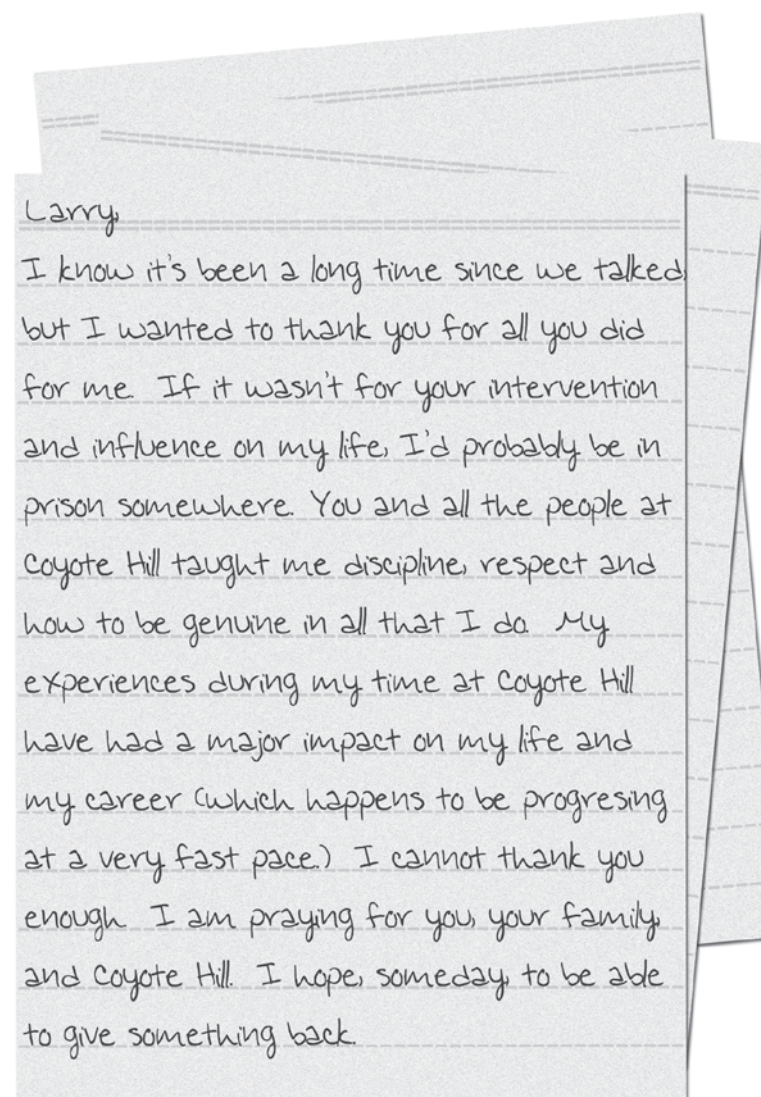 Larry,
I know it's been a long time since we talked,
but I wanted to thank you for all you did
for me. If it wasn't for your intervention
and influence on my life, I'd probably be in
prison somewhere. You and all the people at
Coyote Hill taught me discipline, respect and
how to be genuine in all that I do. My
experiences during my time at Coyote Hill
have had a major impact on my life and
my career (which happens to be progresing
at a very fast pace.) I cannot thank you
enough. I am praying for you, your family,
and Coyote Hill. I hope, someday, to be able
to give something back.